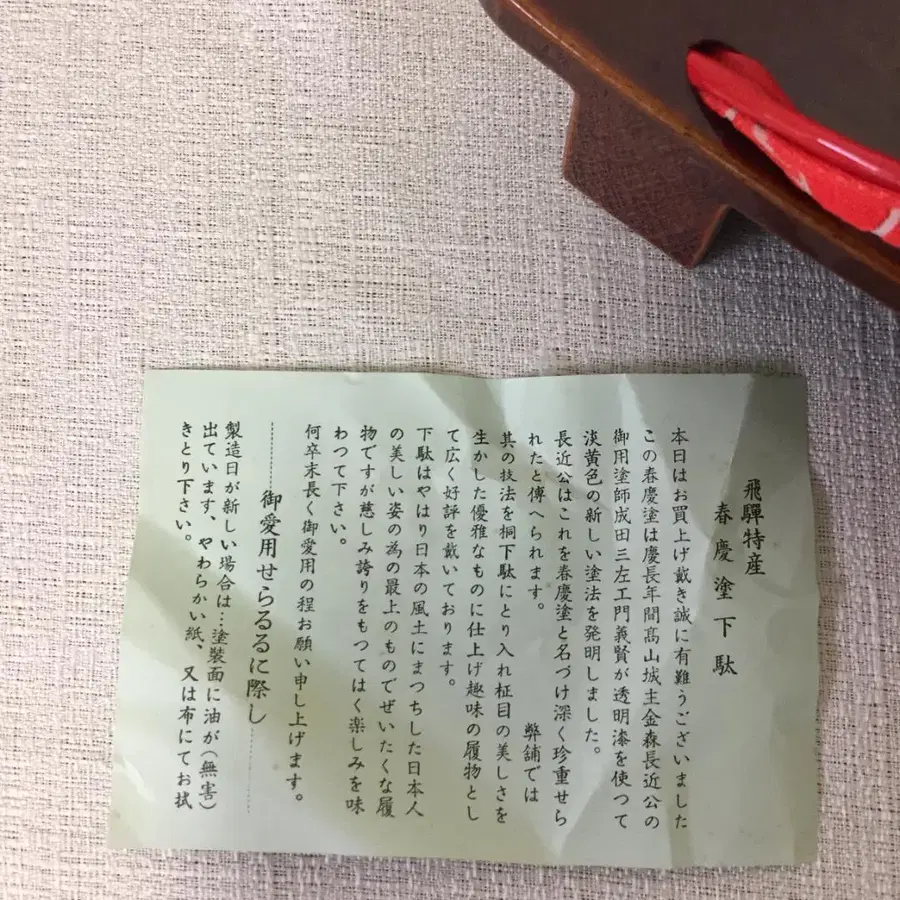 飛騨特産
春慶塗下駄
本日はお買上げ戴き誠に有難うございました
この春慶塗は慶長年間髙山城主金森長近公の
御用塗師成田三左エ門義賢が透明漆を使つて
淡黄色の新しい塗法を発明しました。
長近公はこれを春慶塗と名づけ深く珍重せら
れたと傳へられます。　弊舗では
其の技法を桐下駄にとり入れ柾目の美しさを
生かした優雅なものに仕上げ趣味の履物とし
て広く好評を戴いております。
下駄はやはり日本の風土にまつちした日本人
の美しい姿の為の最上のものでぜいたくな履
物ですが慈しみ誇りをもつてはく楽しみを味
わつて下さい。
何卒末長く御愛用の程お願い申し上げます。
御愛用せらるるに際し
製造日が新しい場合は…塗装面に油が(無害)
出ています、やわらかい紙、又は布にてお拭
きとり下さい。